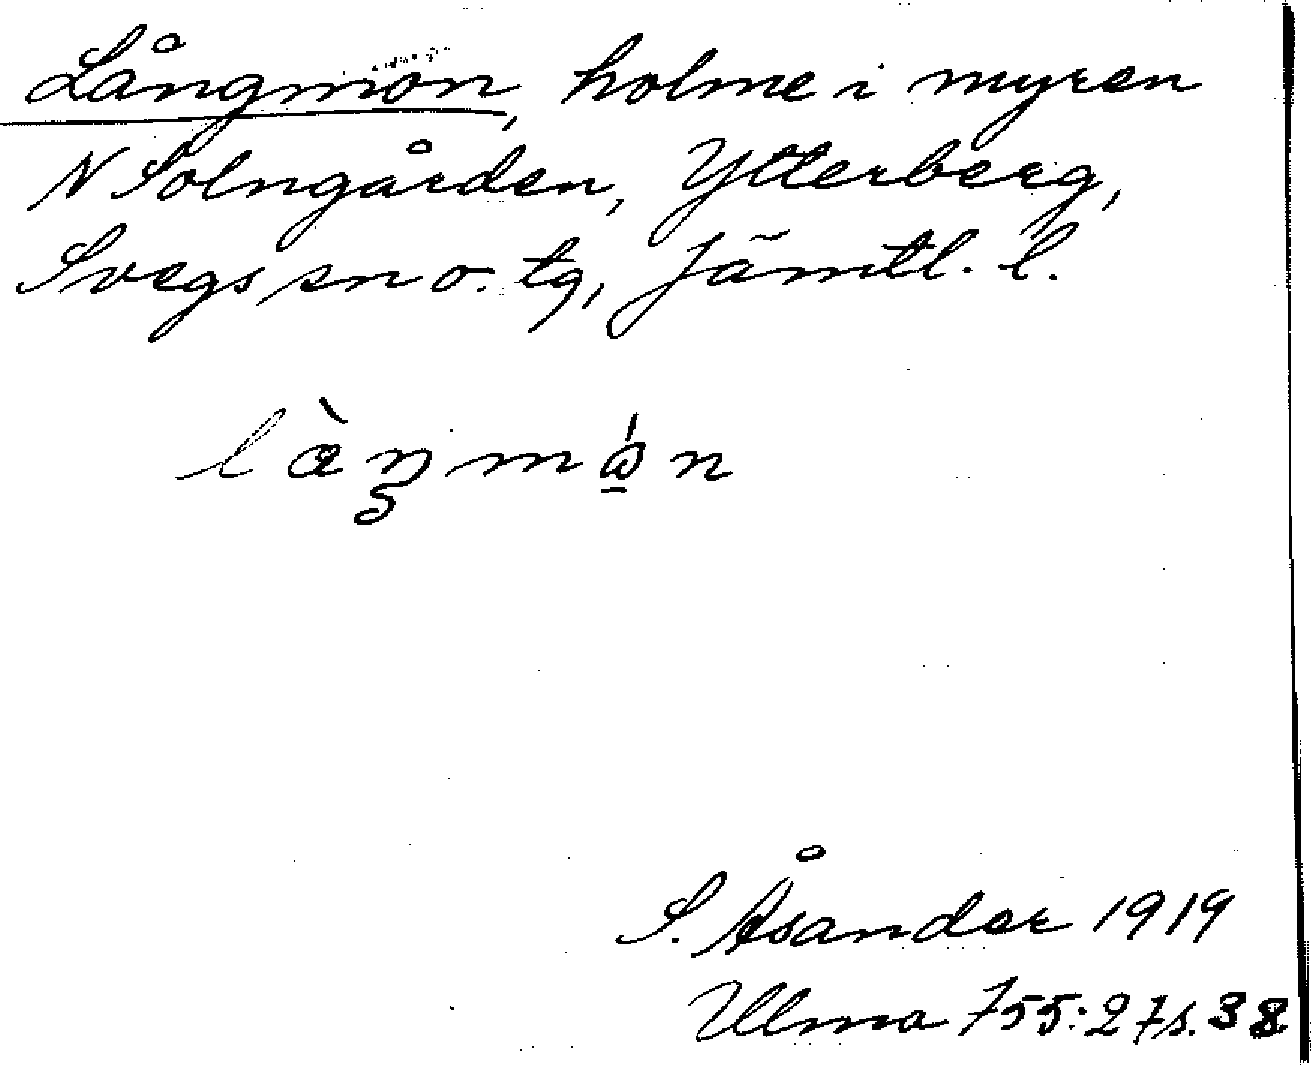 Långmon, holme i myren
N Solngården, Ytterberg,
Svegs sn o. tg, Jämtl. l.
S. Åsander 1919
Ulma 755:27 s. 38